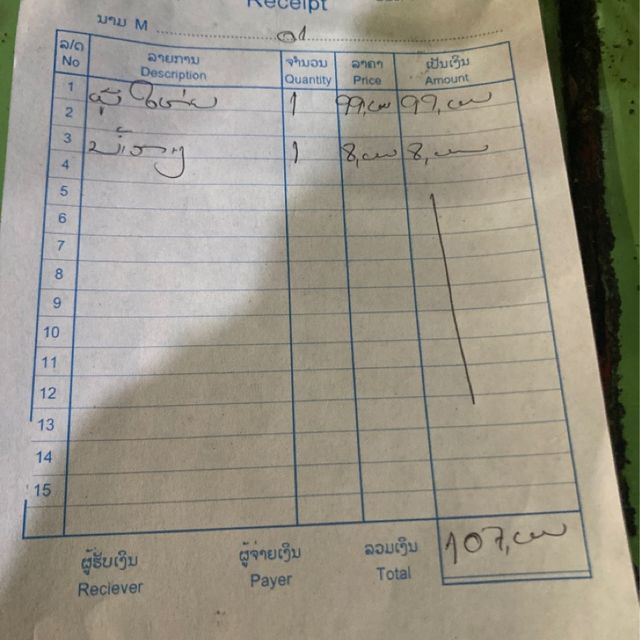 Receipt
ນາມ M
01
ລ/ດ No ລາຍການ Description ຈຳນວນ Quantity ລາຄາ Price ເປັນເງິນ Amount
1
1 99, 99,
2
3
1 8, 8,
4
5
6
7
8
9
10
11
12
13
14
15
ຜູ້ຮັບເງິນ Reciever ຜູ້ຈ່າຍເງິນ Payer ລວມເງິນ Total 107,